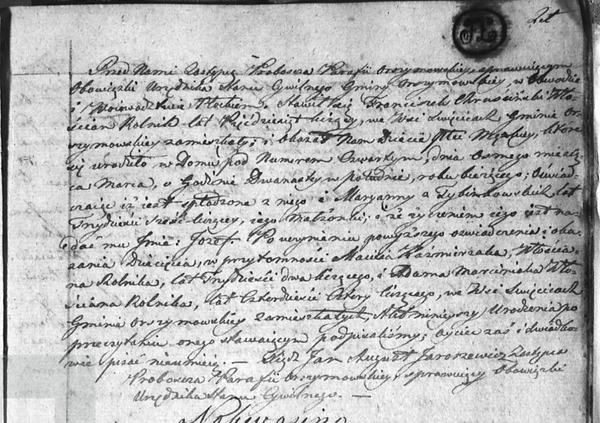 Przed Nami Zastępcą Proboszcza Parafii Orszymowskiey sprawuiącym
Obowiązki Urzędnika Stanu Cywilnego Gminy Orszymowskiey, w Obwodzie
i Woiewodztwie Płockiem, Stawił się Franciszek Chrusciński Wło-
ścian Rolnik lat Pięćdziesiąt liczący, we Wsi Święcicach Gminie Or-
szymowskiey zamieszkały; i okazał Nam Dziecie Płci Męskiey, które
się urodziło w Domu pod Numerem Czwartym, dnia Osmego miesią-
ca Marca, o Godzinie Dwanastey w południe, roku bieżącego; Oświad-
czaiąc iż iest spłodzone z niego i Maryanny z lat
Trzydzieści Sześć liczącey, iego małżonki; o że życzeniem iego iest na-
dać mu Imie: Jozef. Po uczynieniu powyższego oświadczenia i oka-
zania Dziecięcia, w przytomności Macieia Kazmierzaka, Włościa-
na Rolnika, lat Trzydzieści dwa liczącego, i Adama Marciniaka Wło-
ścianina Rolnika, lat Czterdzieści Cztery liczącego, we Wsi Święcicach
Gminie Orszymowskiey zamieszkałych. Akt ninieyszy Urodzenia po
przeczytaniu onego stawaiącym podpisaliśmy; oycieć zaś i świadko-
wie pisać nieumieią. — Xiądz Jan August Jaroszewicz Zastępca
Proboszcza Parafii Orszymowskiey sprawuiący Obowiązki
Urzędnika Stanu Cywilnego. —